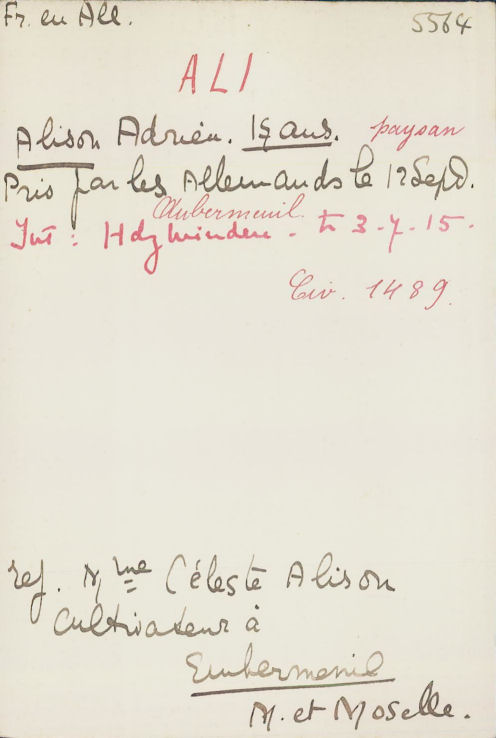 Fr. en All.
5564
ALI
Alison Adrien. 15 ans. paysan
Pris par les Allemands le 12 Sept.
Aubermenil
Int : Holzminden - tr 3-7-15.
Civ. 1489.
ref. Mme Céleste Alison
Cultivateur à
Embermenil
M. et Moselle.